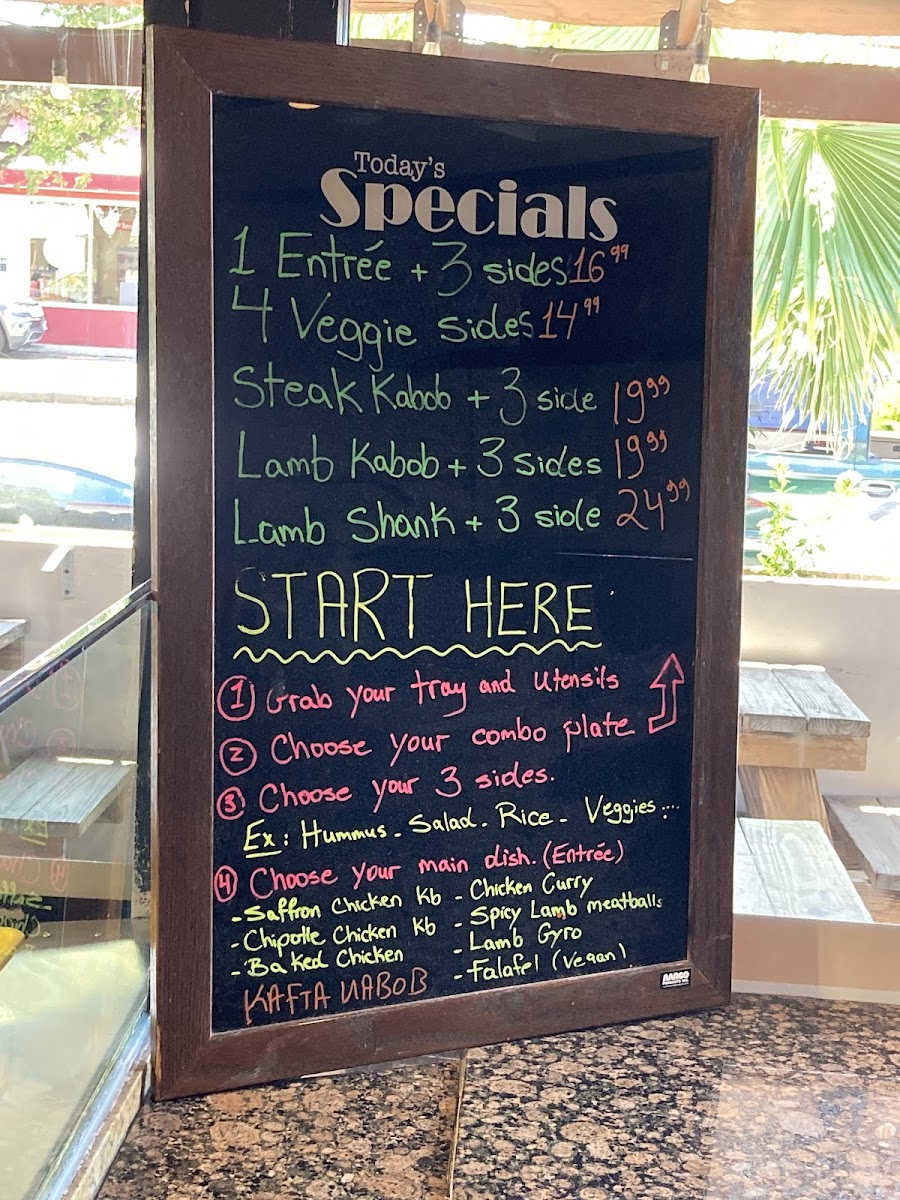 Today's
Specials
1 Entrée + 3 sides 16 99
4 Veggie sides 14 99
Steak Kabob + 3 side 19 99
Lamb Kabob + 3 sides 19 99
Lamb Shank + 3 side 24 99
START HERE
1 Grab your tray and utensils
2 Choose your combo plate
3 Choose your 3 sides.
Ex: Hummus - Salad - Rice - Veggies ....
4 Choose your main dish. (Entrée)
- Saffron Chicken Kb - Chicken Curry
- Chipotle Chicken Kb - Spicy Lamb meatballs
- Baked Chicken - Lamb Gyro
KAFTA KABOB - Falafel (Vegan)
AARCO